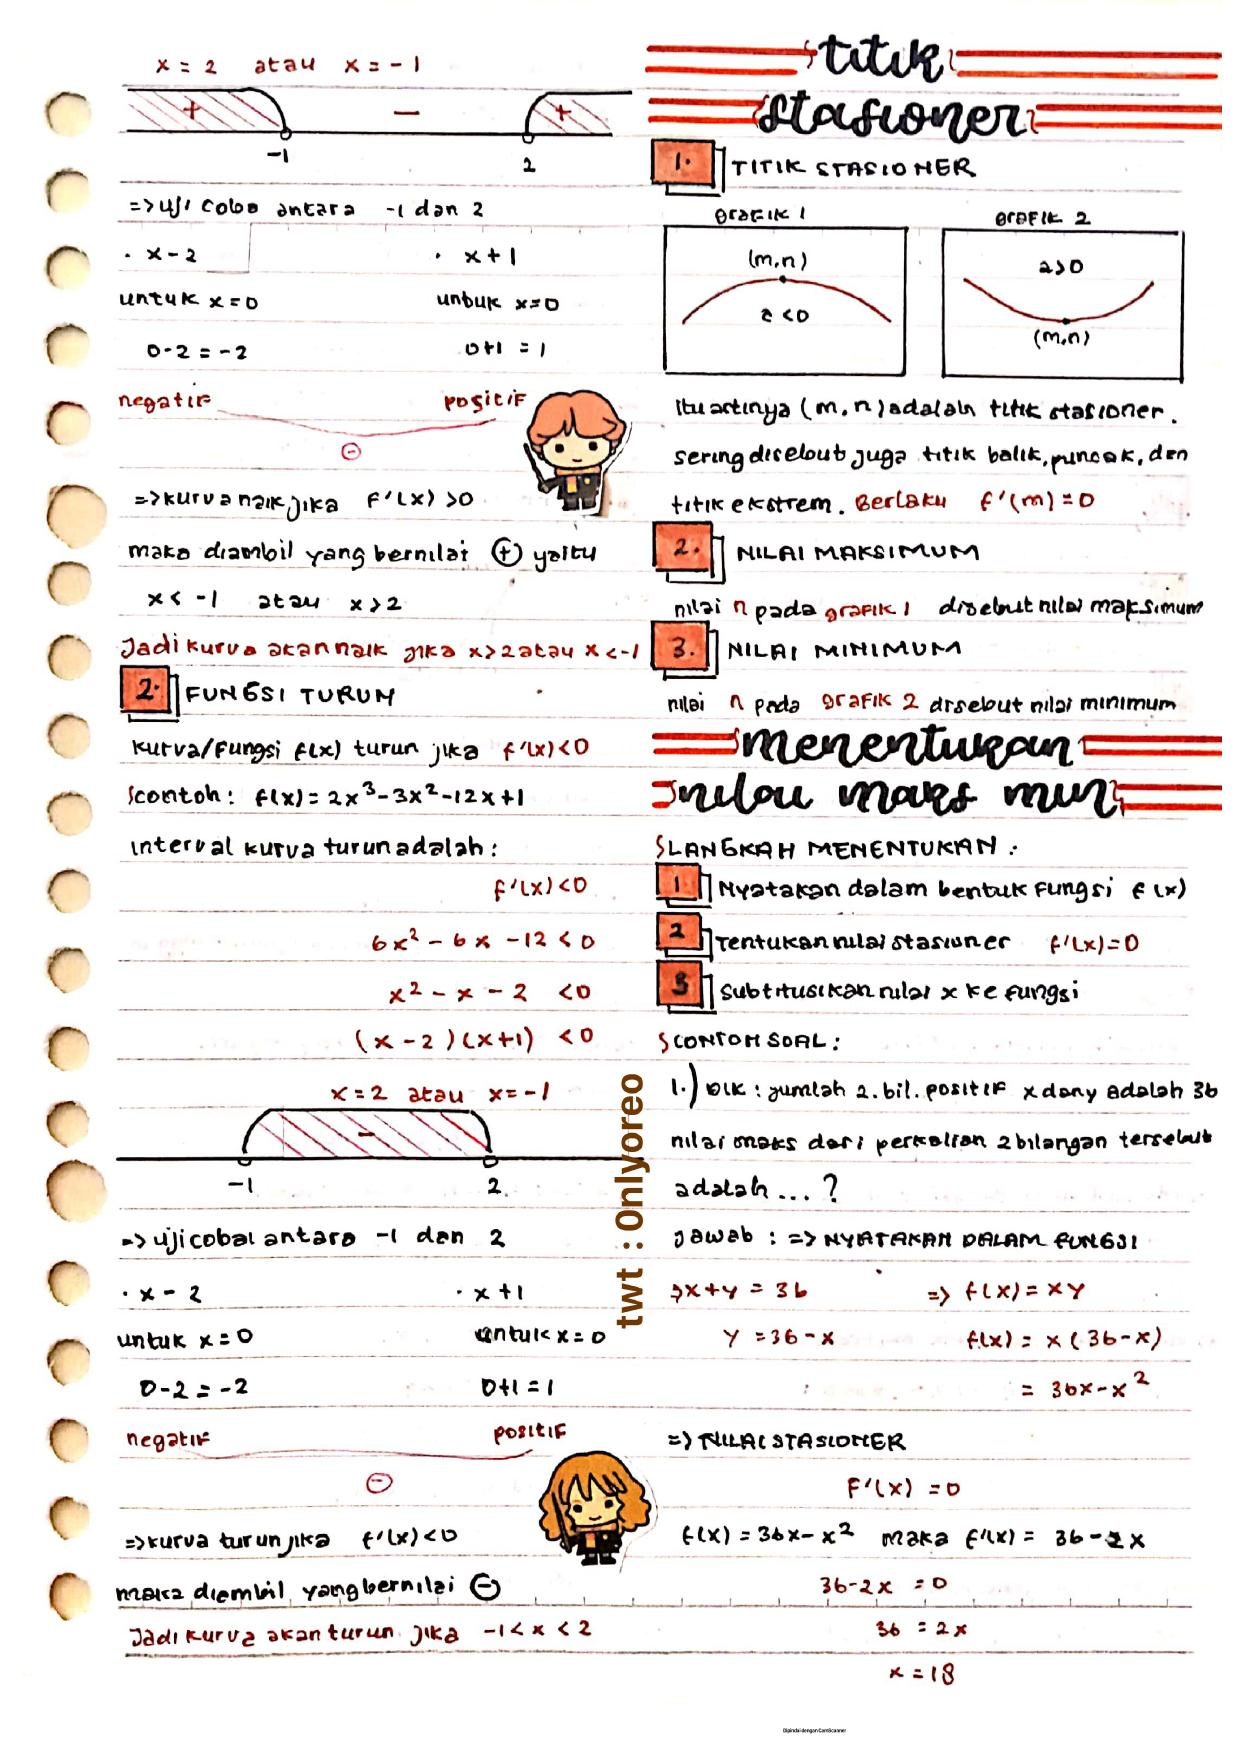 x = 2 atau x = -1
+ - +
-1 2
=> uji coba antara -1 dan 2
· x-2 · x+1
untuk x=0 untuk x=0
0-2 = -2 0+1 = 1
negatif positif
-
=> kurva naik jika F'(x) >0
maka diambil yang bernilai (+) yaitu
x < -1 atau x > 2
Jadi kurva akan naik jika x>2 atau x <-1
2. FUNGSI TURUN
kurva/fungsi f(x) turun jika f'(x)<0
contoh : f(x) = 2x³-3x²-12x+1
interval kurva turun adalah :
f'(x)<0
6x² - 6x -12 < 0
x² - x - 2 <0
(x-2)(x+1) <0
x = 2 atau x = -1
-
-1 2
=> uji coba antara -1 dan 2
· x - 2 · x +1
untuk x = 0 untuk x = 0
0-2 = -2 0+1 = 1
negatif positif
-
=> kurva turun jika f'(x)<0
maka diambil yang bernilai (-)
Jadi kurva akan turun jika -1< x < 2
twt : Onlyoreo
titik
stasioner
1. TITIK STASIONER
Grafik 1 Grafik 2
(m,n) a>0
a <0 (m,n)
Itu artinya (m,n) adalah titik stasioner.
sering disebut juga titik balik, puncak, dan
titik ekstrem. Berlaku f'(m) = 0
2. NILAI MAKSIMUM
nilai n pada grafik 1 disebut nilai maksimum
3. NILAI MINIMUM
nilai n pada grafik 2 disebut nilai minimum
menentukan
nilai maks min
LANGKAH MENENTUKAN :
1 Nyatakan dalam bentuk fungsi f(x)
2 Tentukan nilai stasioner f'(x)=0
3 Subtitusikan nilai x ke fungsi
CONTOH SOAL :
1.) Dik : jumlah 2. bil. positif x dan y adalah 36
nilai maks dari perkalian 2 bilangan tersebut
adalah ... ?
Jawab : => NYATAKAN DALAM FUNGSI
>x+y = 36 => f(x) = xy
y = 36 - x f(x) = x (36-x)
= 36x-x²
=> NILAI STASIONER
F'(x) = 0
f(x) = 36x-x² maka f'(x) = 36 -2x
36-2x = 0
36 = 2x
x = 18
Dipindai dengan CamScanner